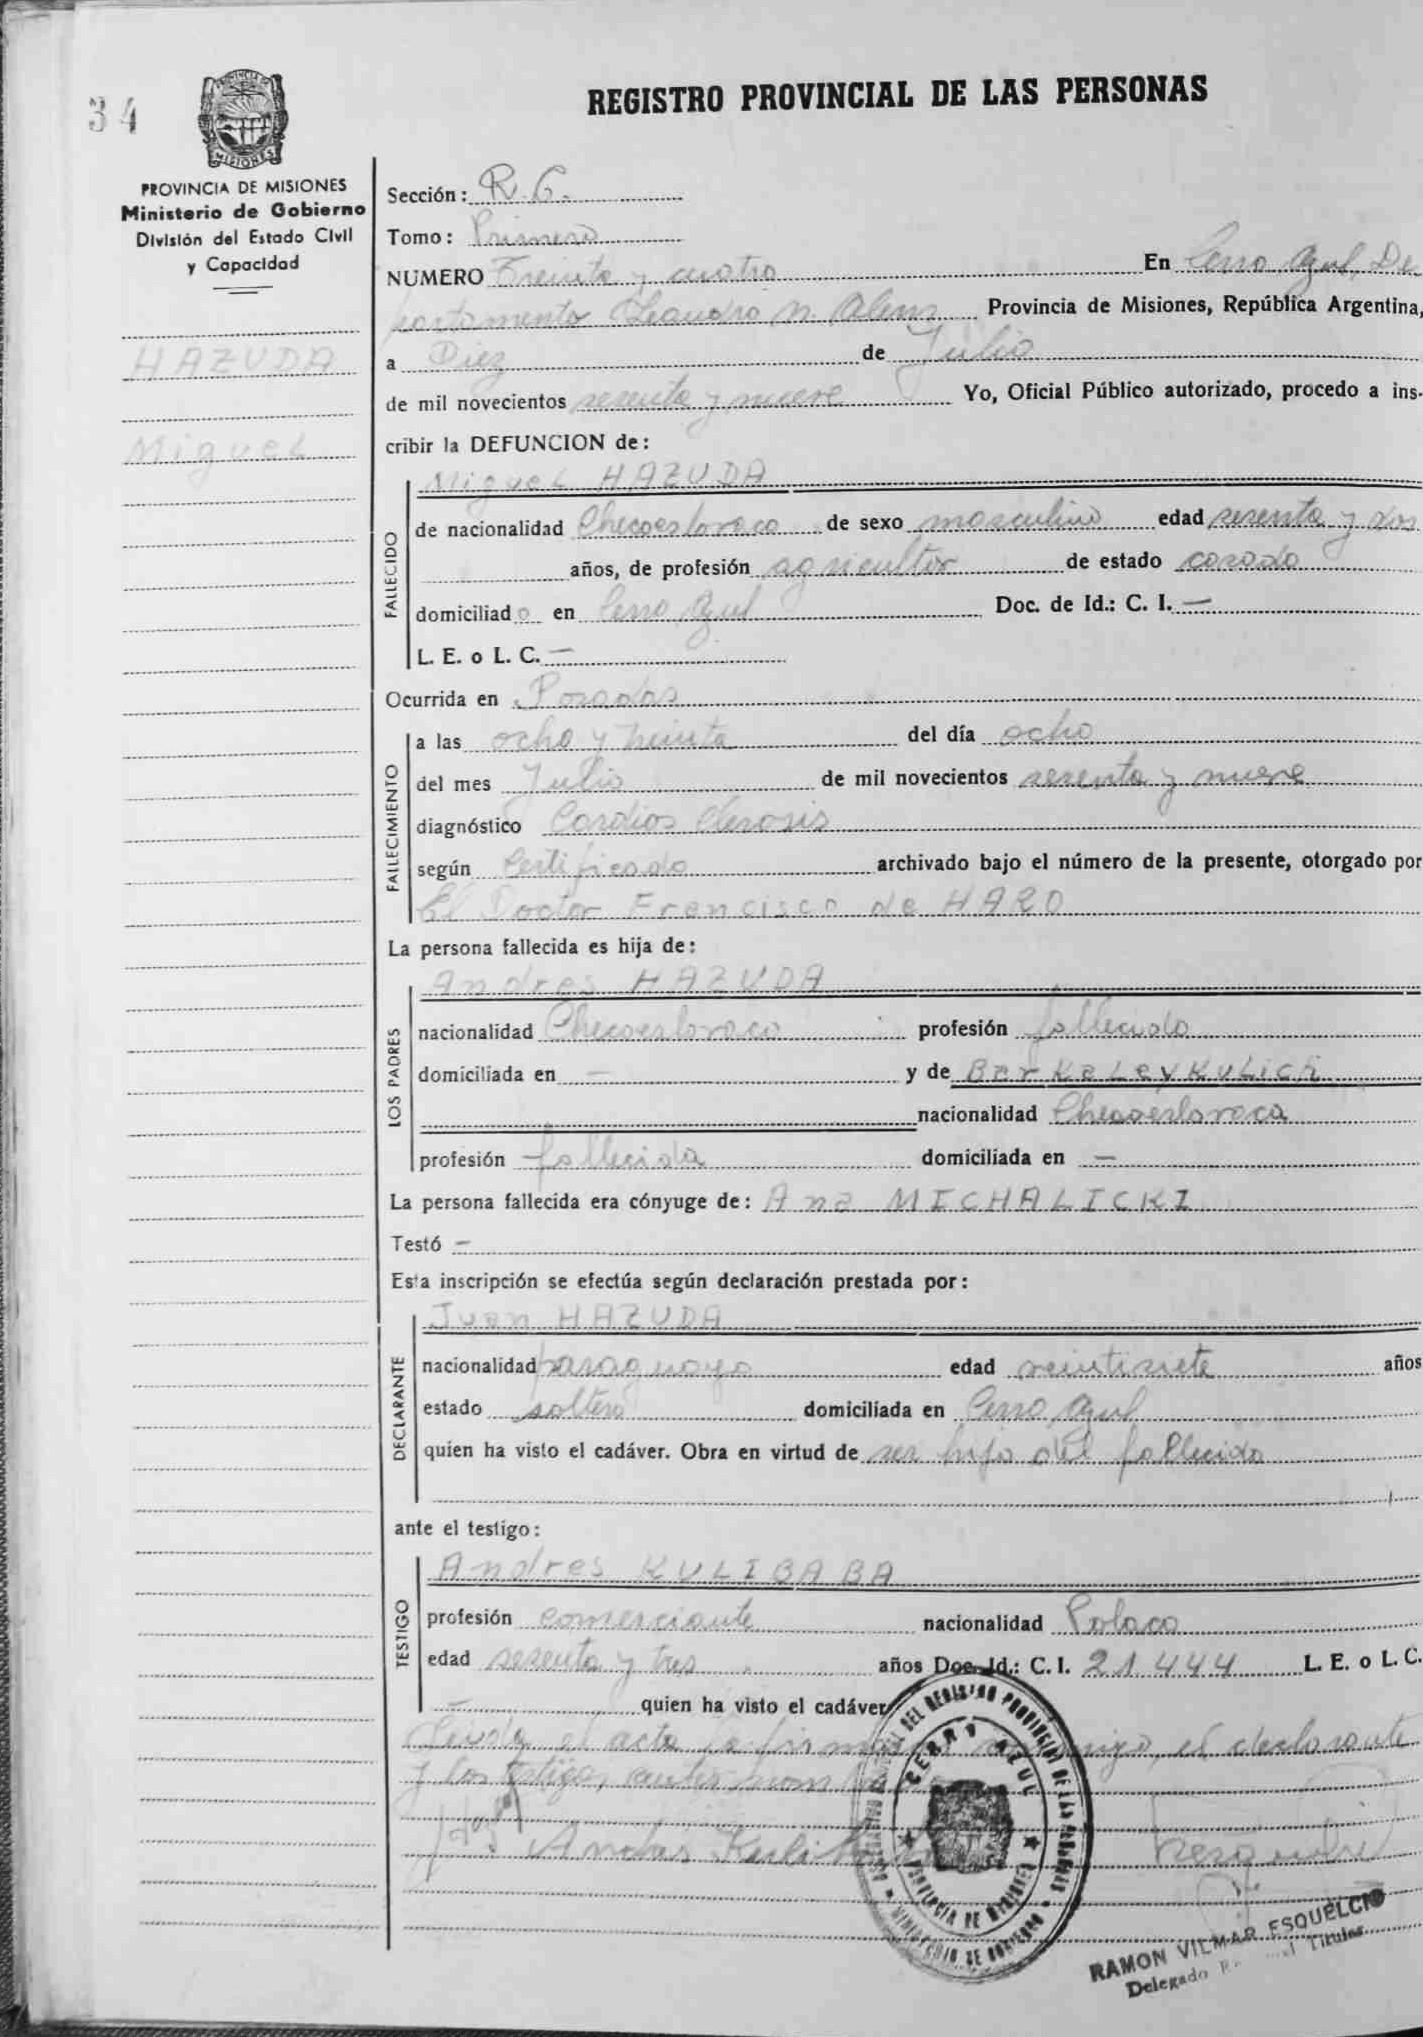 34
REGISTRO PROVINCIAL DE LAS PERSONAS
PROVINCIA DE MISIONES
Ministerio de Gobierno
División del Estado Civil
y Capacidad
HAZUDA
Miguel
Sección: R. C.
Tomo: Primero
NUMERO Treinta y cuatro En Cerro Azul, De
partamento Leandro N. Alem Provincia de Misiones, República Argentina,
a Diez de Julio
de mil novecientos sesenta y nueve Yo, Oficial Público autorizado, procedo a ins-
cribir la DEFUNCION de:
Miguel HAZUDA
FALLECIDO
de nacionalidad Checoeslovaco de sexo masculino edad sesenta y dos
años, de profesión agricultor de estado casado
domiciliado en Cerro Azul Doc. de Id.: C. I. —
L. E. o L. C. —
Ocurrida en Posadas
FALLECIMIENTO
a las ocho y treinta del día ocho
del mes Julio de mil novecientos sesenta y nueve
diagnóstico Cardios clerosis
según Certificado archivado bajo el número de la presente, otorgado por
El Doctor Francisco de HARO
La persona fallecida es hija de:
Andres HAZUDA
LOS PADRES
nacionalidad Checoeslovaco profesión fallecido
domiciliada en — y de Berkeleykulich
nacionalidad Checoeslovaca
profesión fallecida domiciliada en —
La persona fallecida era cónyuge de: Ana MICHALICKI
Testó —
Esta inscripción se efectúa según declaración prestada por:
Juan HAZUDA
DECLARANTE
nacionalidad paraguayo edad veintisiete años
estado soltero domiciliada en Cerro Azul
quien ha visto el cadáver. Obra en virtud de ser hijo del fallecido
ante el testigo:
Andres KULIBABA
TESTIGO
profesión comerciante nacionalidad Polaco
edad sesenta y tres años Doc. Id.: C. I. 21.444 L. E. o L. C.
— quien ha visto el cadáver
Leída el acta la firman conmigo, el declarante
y los testigos
Andres
CERRO AZUL
PROVINCIA DE MISIONES
MINISTERIO DE GOBIERNO
DEL REGISTRO PROVINCIAL DE LAS PERSONAS
RAMON VILMAR ESQUELCIO
Delegado Titular